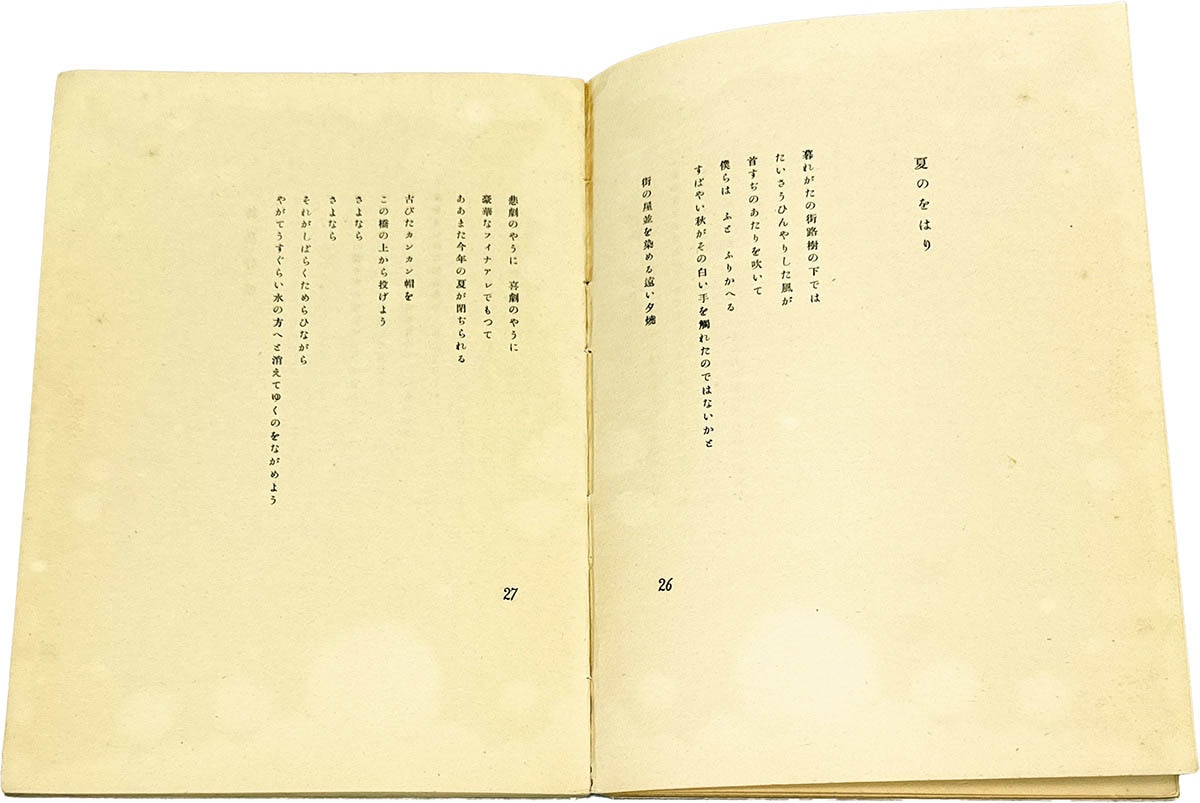 夏のをはり
暮れがたの街路樹の下では
たいさうひんやりした風が
首すぢのあたりを吹いて
僕らは　ふと　ふりかへる
すばやい秋がその白い手を觸れたのではないかと
街の屋並を染める遠い夕燒
26
悲劇のやうに　喜劇のやうに
豪華なフイナアレでもつて
ああまた今年の夏が閉ぢられる
古びたカンカン帽を
この橋の上から投げよう
さよなら
さよなら
それがしばらくためらひながら
やがてうすぐらい水の方へと消えてゆくのをながめよう
27